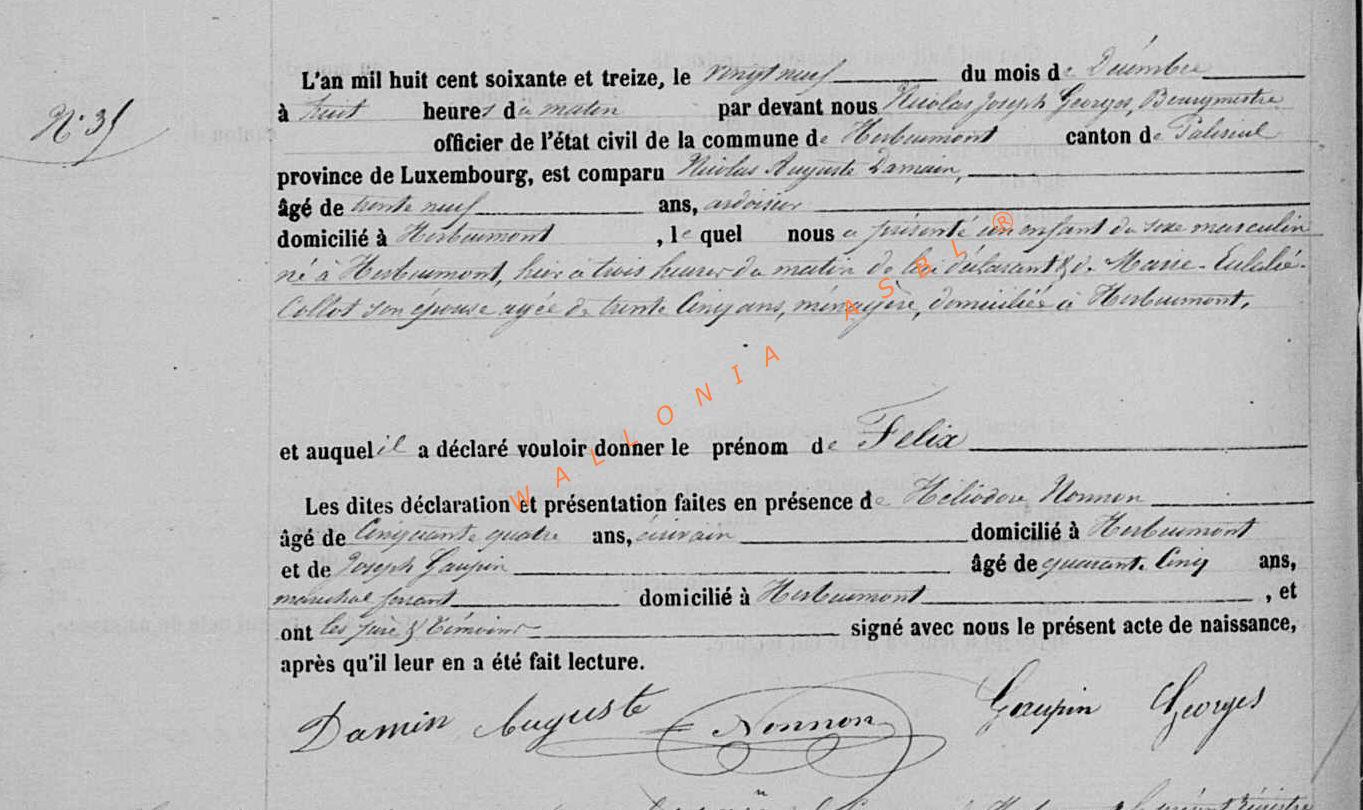 L'an mil huit cent soixante et treize, le vingt neuf du mois de Décembre
à huit heures du matin par devant nous Nicolas Joseph Georges, Bourgmestre
N° 35
officier de l'état civil de la commune de Herbeumont canton de Paliseul
province de Luxembourg, est comparu Nicolas Auguste Damain,
âgé de trente neuf ans, ardoisier
domicilié à Herbeumont, le quel nous a présenté un enfant du sexe masculin
né à Herbeumont, hier à trois heures du matin de lui déclarant & de Marie-Eulalie
Collot son épouse agée de trente Cinq ans, ménagère, domiciliée à Herbeumont,
WALLONIA ASBL ®
et auquel il a déclaré vouloir donner le prénom de Felix
Les dites déclaration et présentation faites en présence de Héliodore Nonnon
âgé de Cinquante quatre ans, écrivain domicilié à Herbeumont
et de Joseph Gaupin âgé de quarante Cinq ans,
maréchal ferrant domicilié à Herbeumont, et
ont les père & témoins signé avec nous le présent acte de naissance,
après qu'il leur en a été fait lecture.
Damin Auguste Nonnon Gaupin Georges